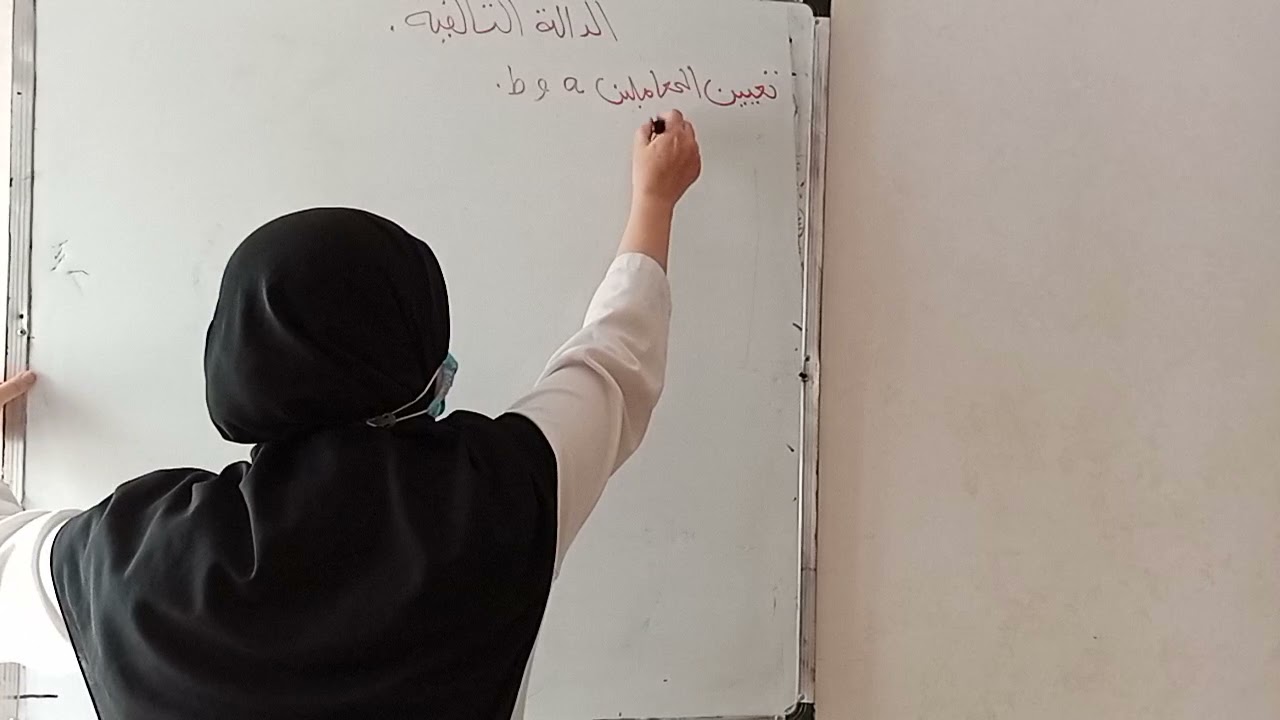 الدالة التآلفية.
تعيين المعاملين a و b.